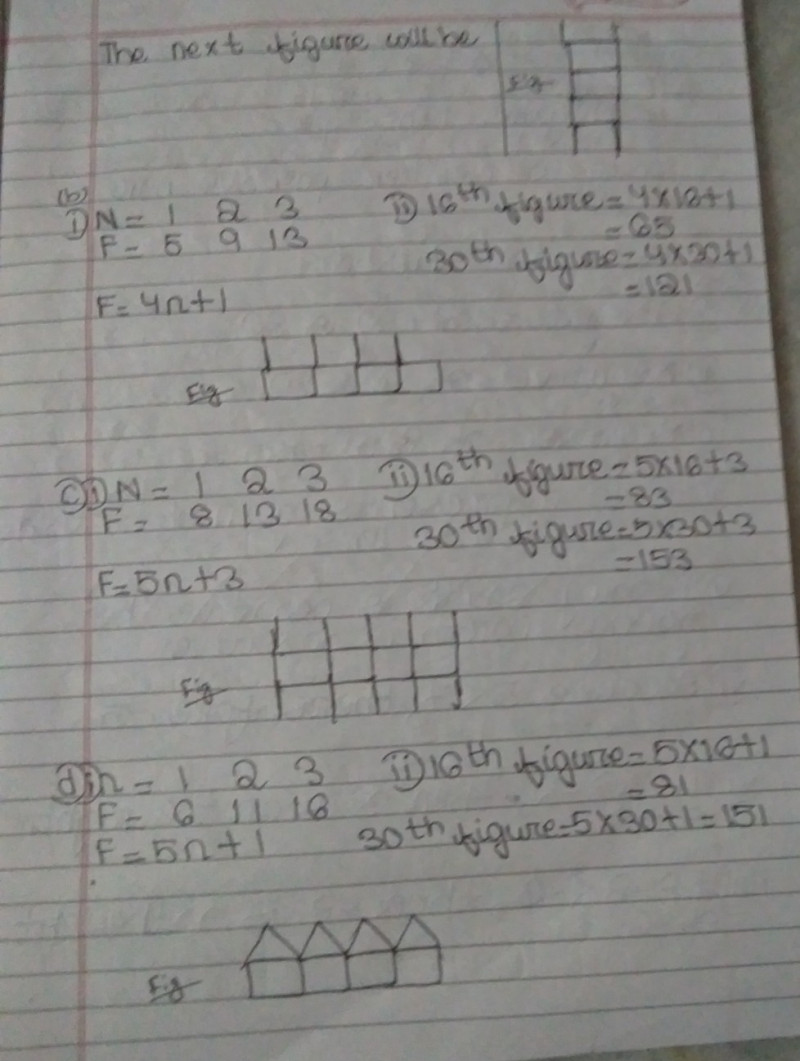 The next figure will be
Fig
(b)
i) N = 1 2 3 ii) 16th figure = 4×16+1
F = 5 9 13 = 65
30th figure = 4×30+1
= 121
F = 4n+1
Fig
c) i) N = 1 2 3 ii) 16th figure = 5×16+3
F = 8 13 18 = 83
30th figure = 5×30+3
= 153
F = 5n+3
Fig
d) i) n = 1 2 3 ii) 16th figure = 5×16+1
F = 6 11 16 = 81
F = 5n+1 30th figure = 5×30+1 = 151
Fig